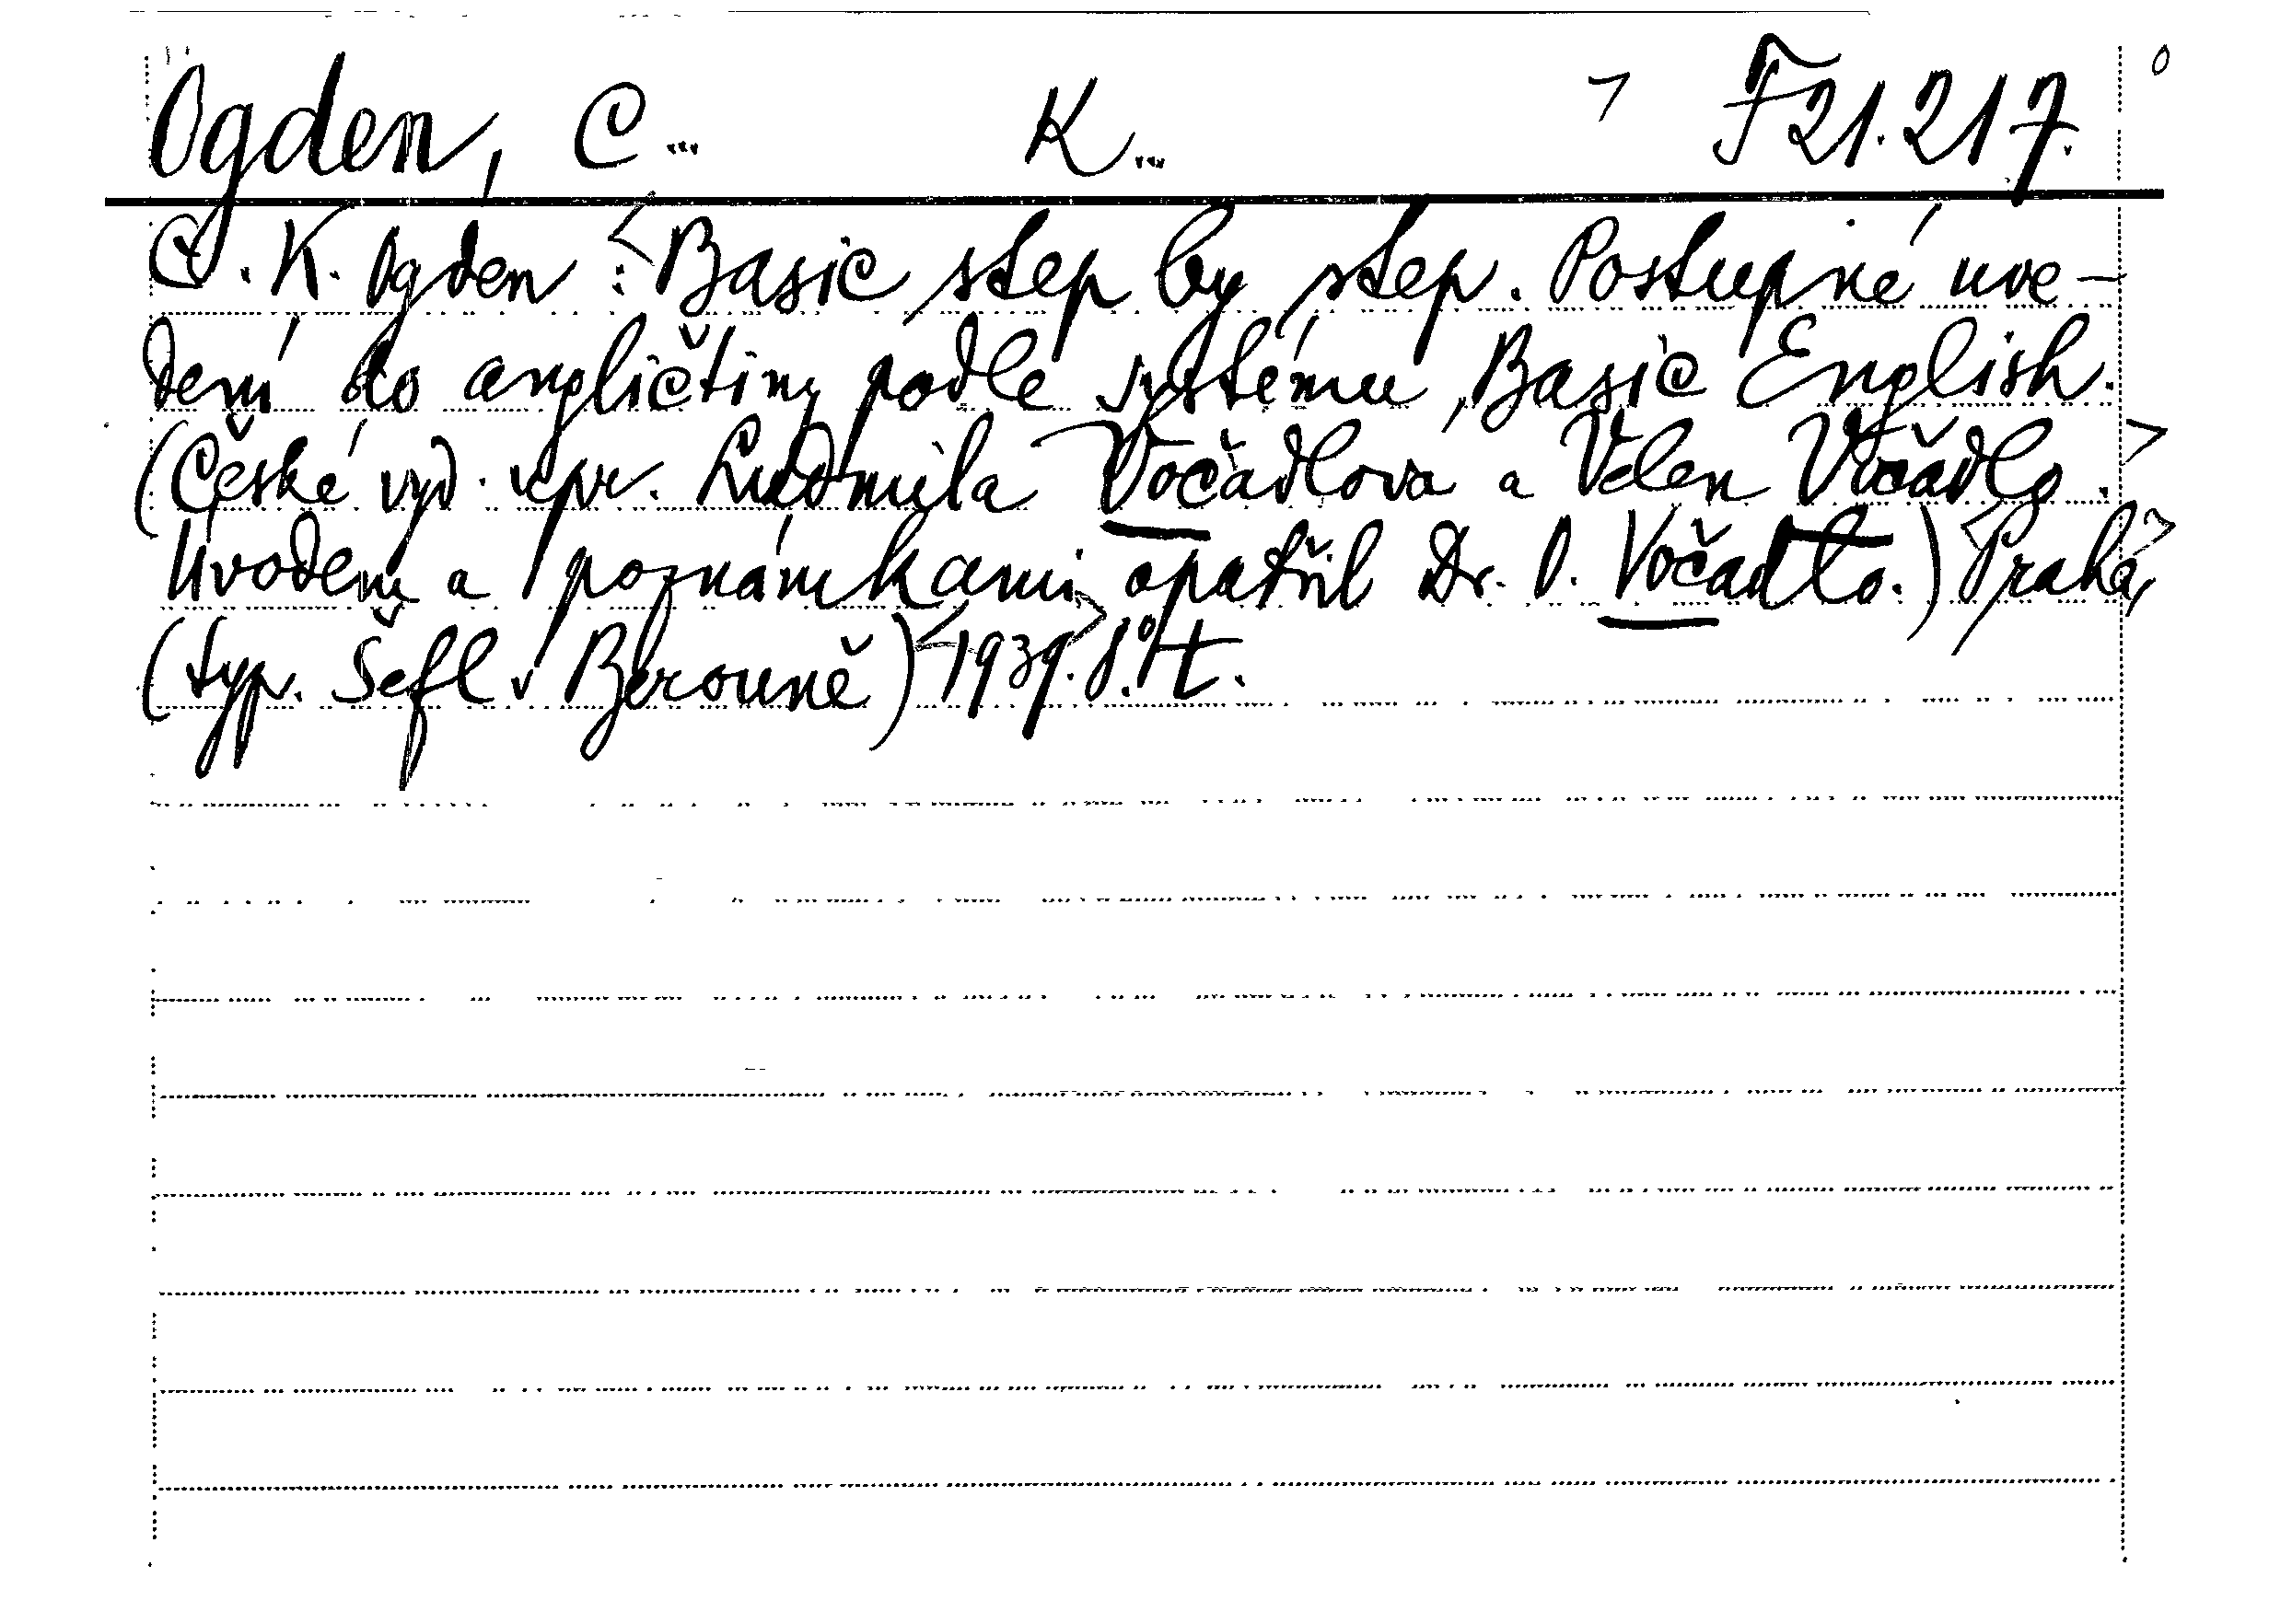 Ogden, C... K... F 21.217.
C. K. Ogden : Basic step by step. Postupné uve-
dení do angličtiny podle systému Basic English.
(České vyd. upr. Ludmila Vočadlova a Velen Vočadlo.
Úvodem a poznámkami opatřil Dr. O. Vočadlo.) Praha,
(typ. Šefl v Berouně) 1939. 8.° t.